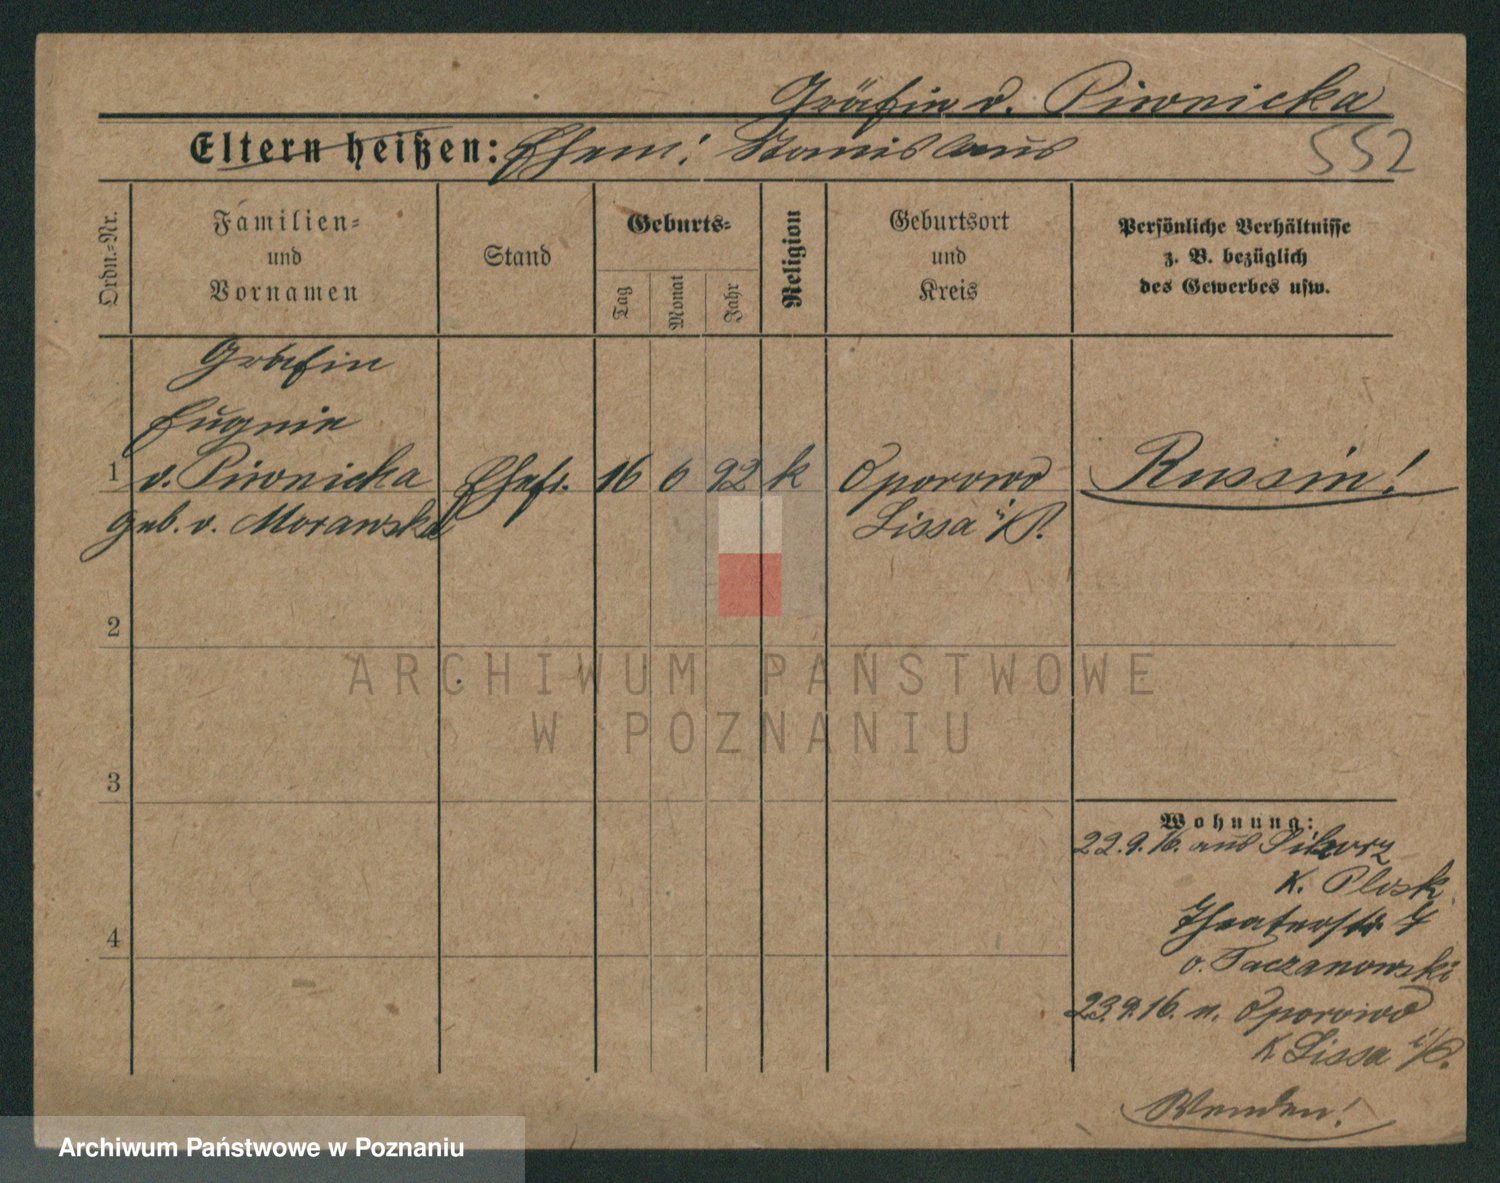 Gräfin v. Piwnicka
Eltern heißen: Ehem: Stanislaus
552
Ordn.-Nr.
Familien-
und
Vornamen
Stand
Geburts-
Tag
Monat
Jahr
Religion
Geburtsort
und
Kreis
Persönliche Verhältnisse
z. B. bezüglich
des Gewerbes usw.
Gräfin
Eugenie
1 v. Piwnicka Ehefr. 16 6 92 k Oporowo Russin!
geb. v. Morawska Lissa i/P.
2
3
4
Wohnung:
22.9.16. aus Sikorz
K. Plosk
Theaterstr. 4
v. Taczanowski
23.9.16. n. Oporowo
K Lissa i/P.
Wenden!
ARCHIWUM PAŃSTWOWE
W POZNANIU
Archiwum Państwowe w Poznaniu